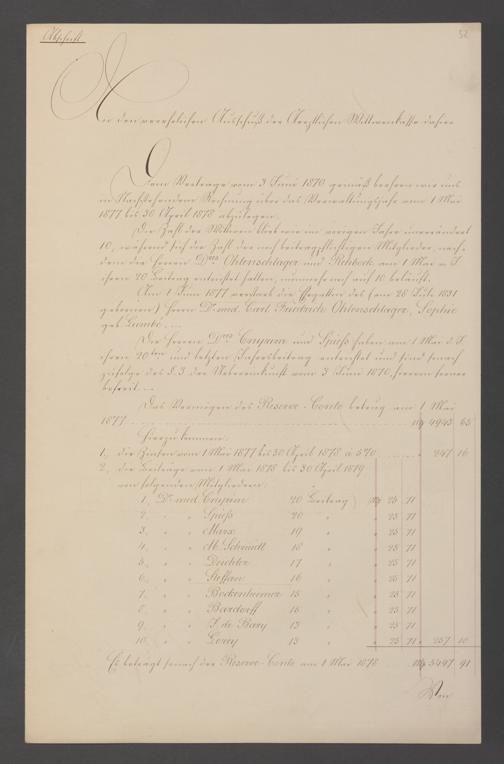 Abschrift
52
An den verehrlichen Ausschuß der Aerztlichen Wittwenkasse dahier
Dem Vertrage vom 3 Juni 1870 gemäß beehren wir uns
in Nachstehendem Rechnung über das Verwaltungsjahr vom 1 Mai
1877 bis 30 April 1878 abzulegen.
Die Zahl der Wittwen blieb wie im vorigen Jahre unverändert
10, während sich die Zahl der noch beitragspflichtigen Mitglieder, nach-
dem die Herren Dres Ohlenschlager und Rehbock am 1 Mai v. J.
ihren 20 Beitrag entrichtet hatten, nunmehr noch auf 10 beläuft.
Am 1 Juni 1877 verstarb die Ehegattin des (am 28 Jule 1831
geborenen) Herrn Dr. med. Carl Friedrich Ohlenschlager, Sophie
geb.
Die Herren Dres Crepin und Spieß haben am 1 Mai d. J.
ihren 20ten und letzten Jahresbeitrag entrichtet und sind somit
zufolge des § 3 der Uebereinkunft vom 3 Juni 1870, hiervon ferner
befreit.
Das Vermögen des Reserve-Conto betrug am 1 Mai
1877 4943 65
Hierzu kommen:
1., die Zinsen vom 1 Mai 1877 bis 30 April 1878 à 5% 247 16
2., die Beiträge vom 1 Mai 1878 bis 30 April 1879
von folgenden Mitgliedern:
1., Dr. med. 20 Beitrag 25 71
2., " " Spieß 20 " " 25 71
3., " " Marx 19 " " 25 71
4., " " M. Schmidt 18 " " 25 71
5., " " 17 " " 25 71
6., " " Steffan 16 " " 25 71
7., " " Bockenheimer 15 " " 25 71
8., " " Bardorff 15 " " 25 71
9., " " J. de Bary 13 " " 25 71
10., " " Lorey 13 " " 25 71 " 257 10
Es beträgt somit der Reserve-Conto am 1 Mai 1878 5447 91